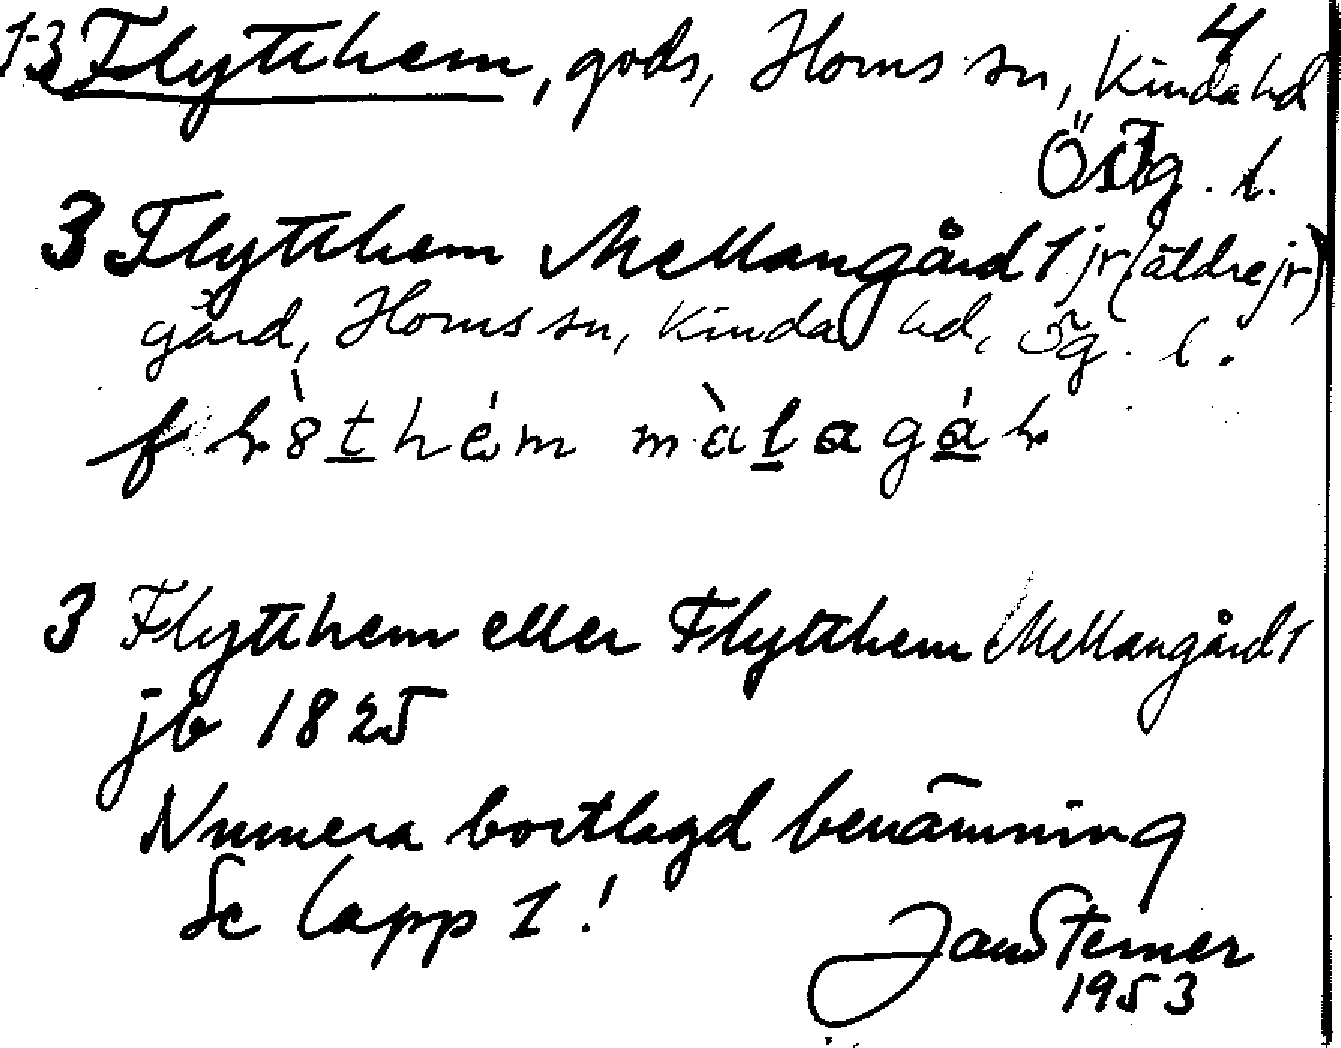 1-3 Flytthem, gods, Horns sn, Kinda hd 4
Östg. l.
3 Flytthem Mellangård 1 jr (äldre jr)
gård, Horns sn, Kinda hd, Ög. l.
3 Flytthem eller Flytthem Mellangård 1
jb 1825
Numera bortlagd benämning
Se lapp 1!
Jan Sterner
1953